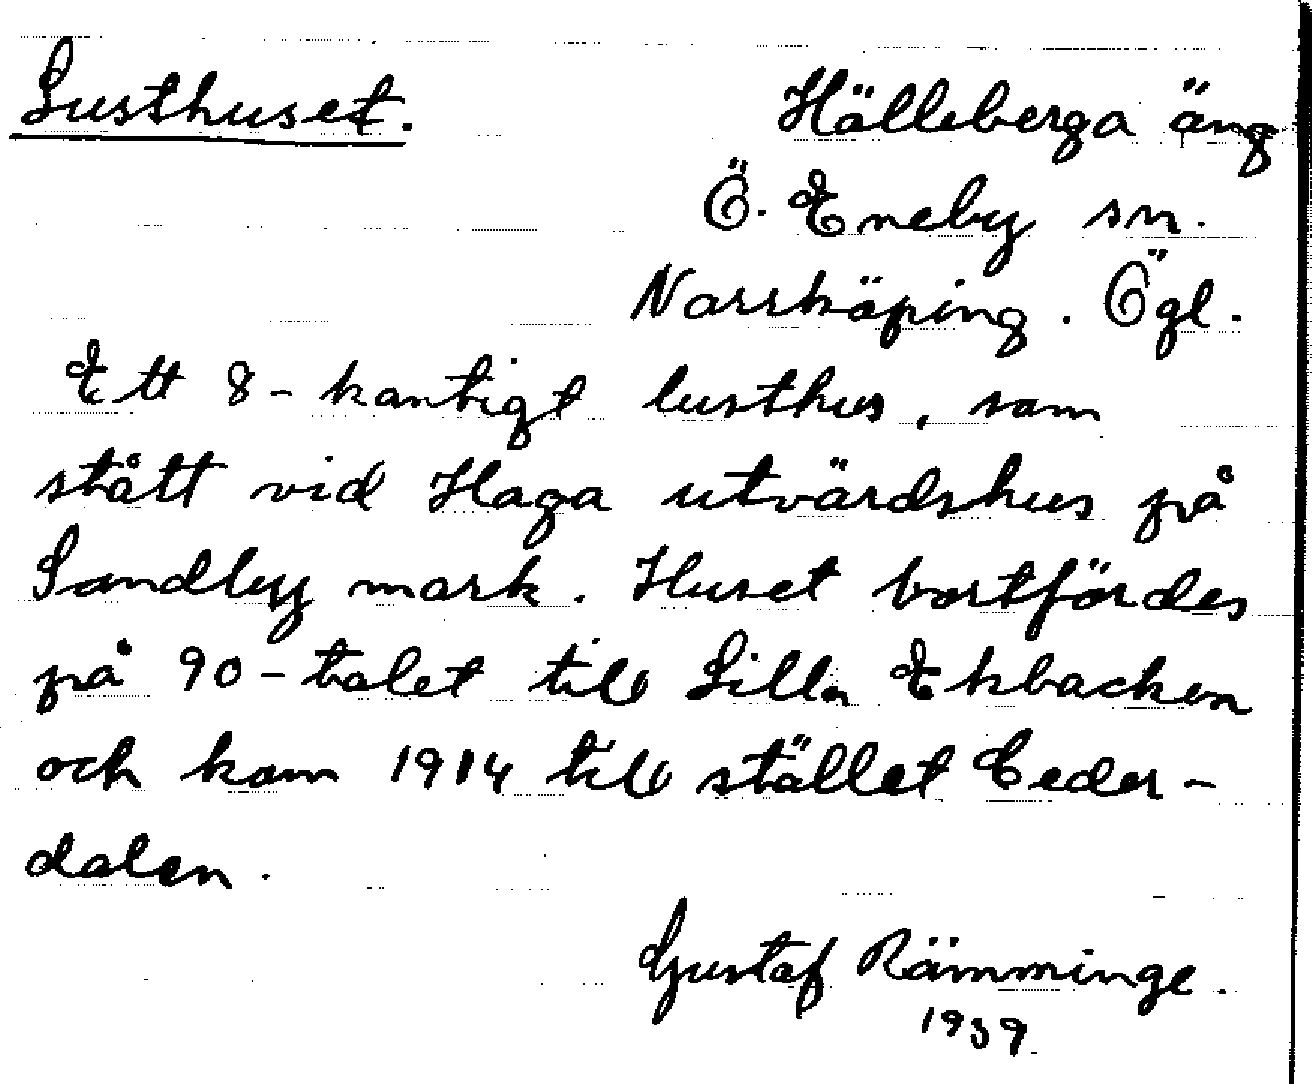 Lusthuset.
Hälleberga äng
Ö. Eneby sn.
Norrköping. Ögl.
Ett 8-kantigt lusthus, som
stått vid Haga utvärdshus på
Sandby mark. Huset bortfördes
på 90-talet till Lilla Ekbacken
och kom 1914 till stället Ceder-
dalen.
Gustaf Rämminge.
1939.